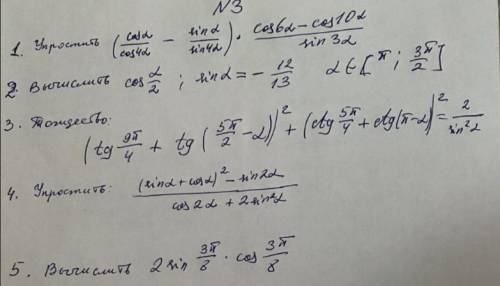 №3
1. Упростить (cosα/cos4α − sinα/sin4α) · (cos6α − cos10α)/sin3α
2. Вычислить cos α/2 ; sinα = − 12/13 α ∈ [π ; 3π/2]
3. Тождество:
(tg 9π/4 + tg (5π/2 − α))² + (ctg 5π/4 + ctg(π−α))² = 2/sin²α
4. Упростить: ((sinα + cosα)² − sin2α)/(cos2α + 2sin²α)
5. Вычислить 2 sin 3π/8 · cos 3π/8